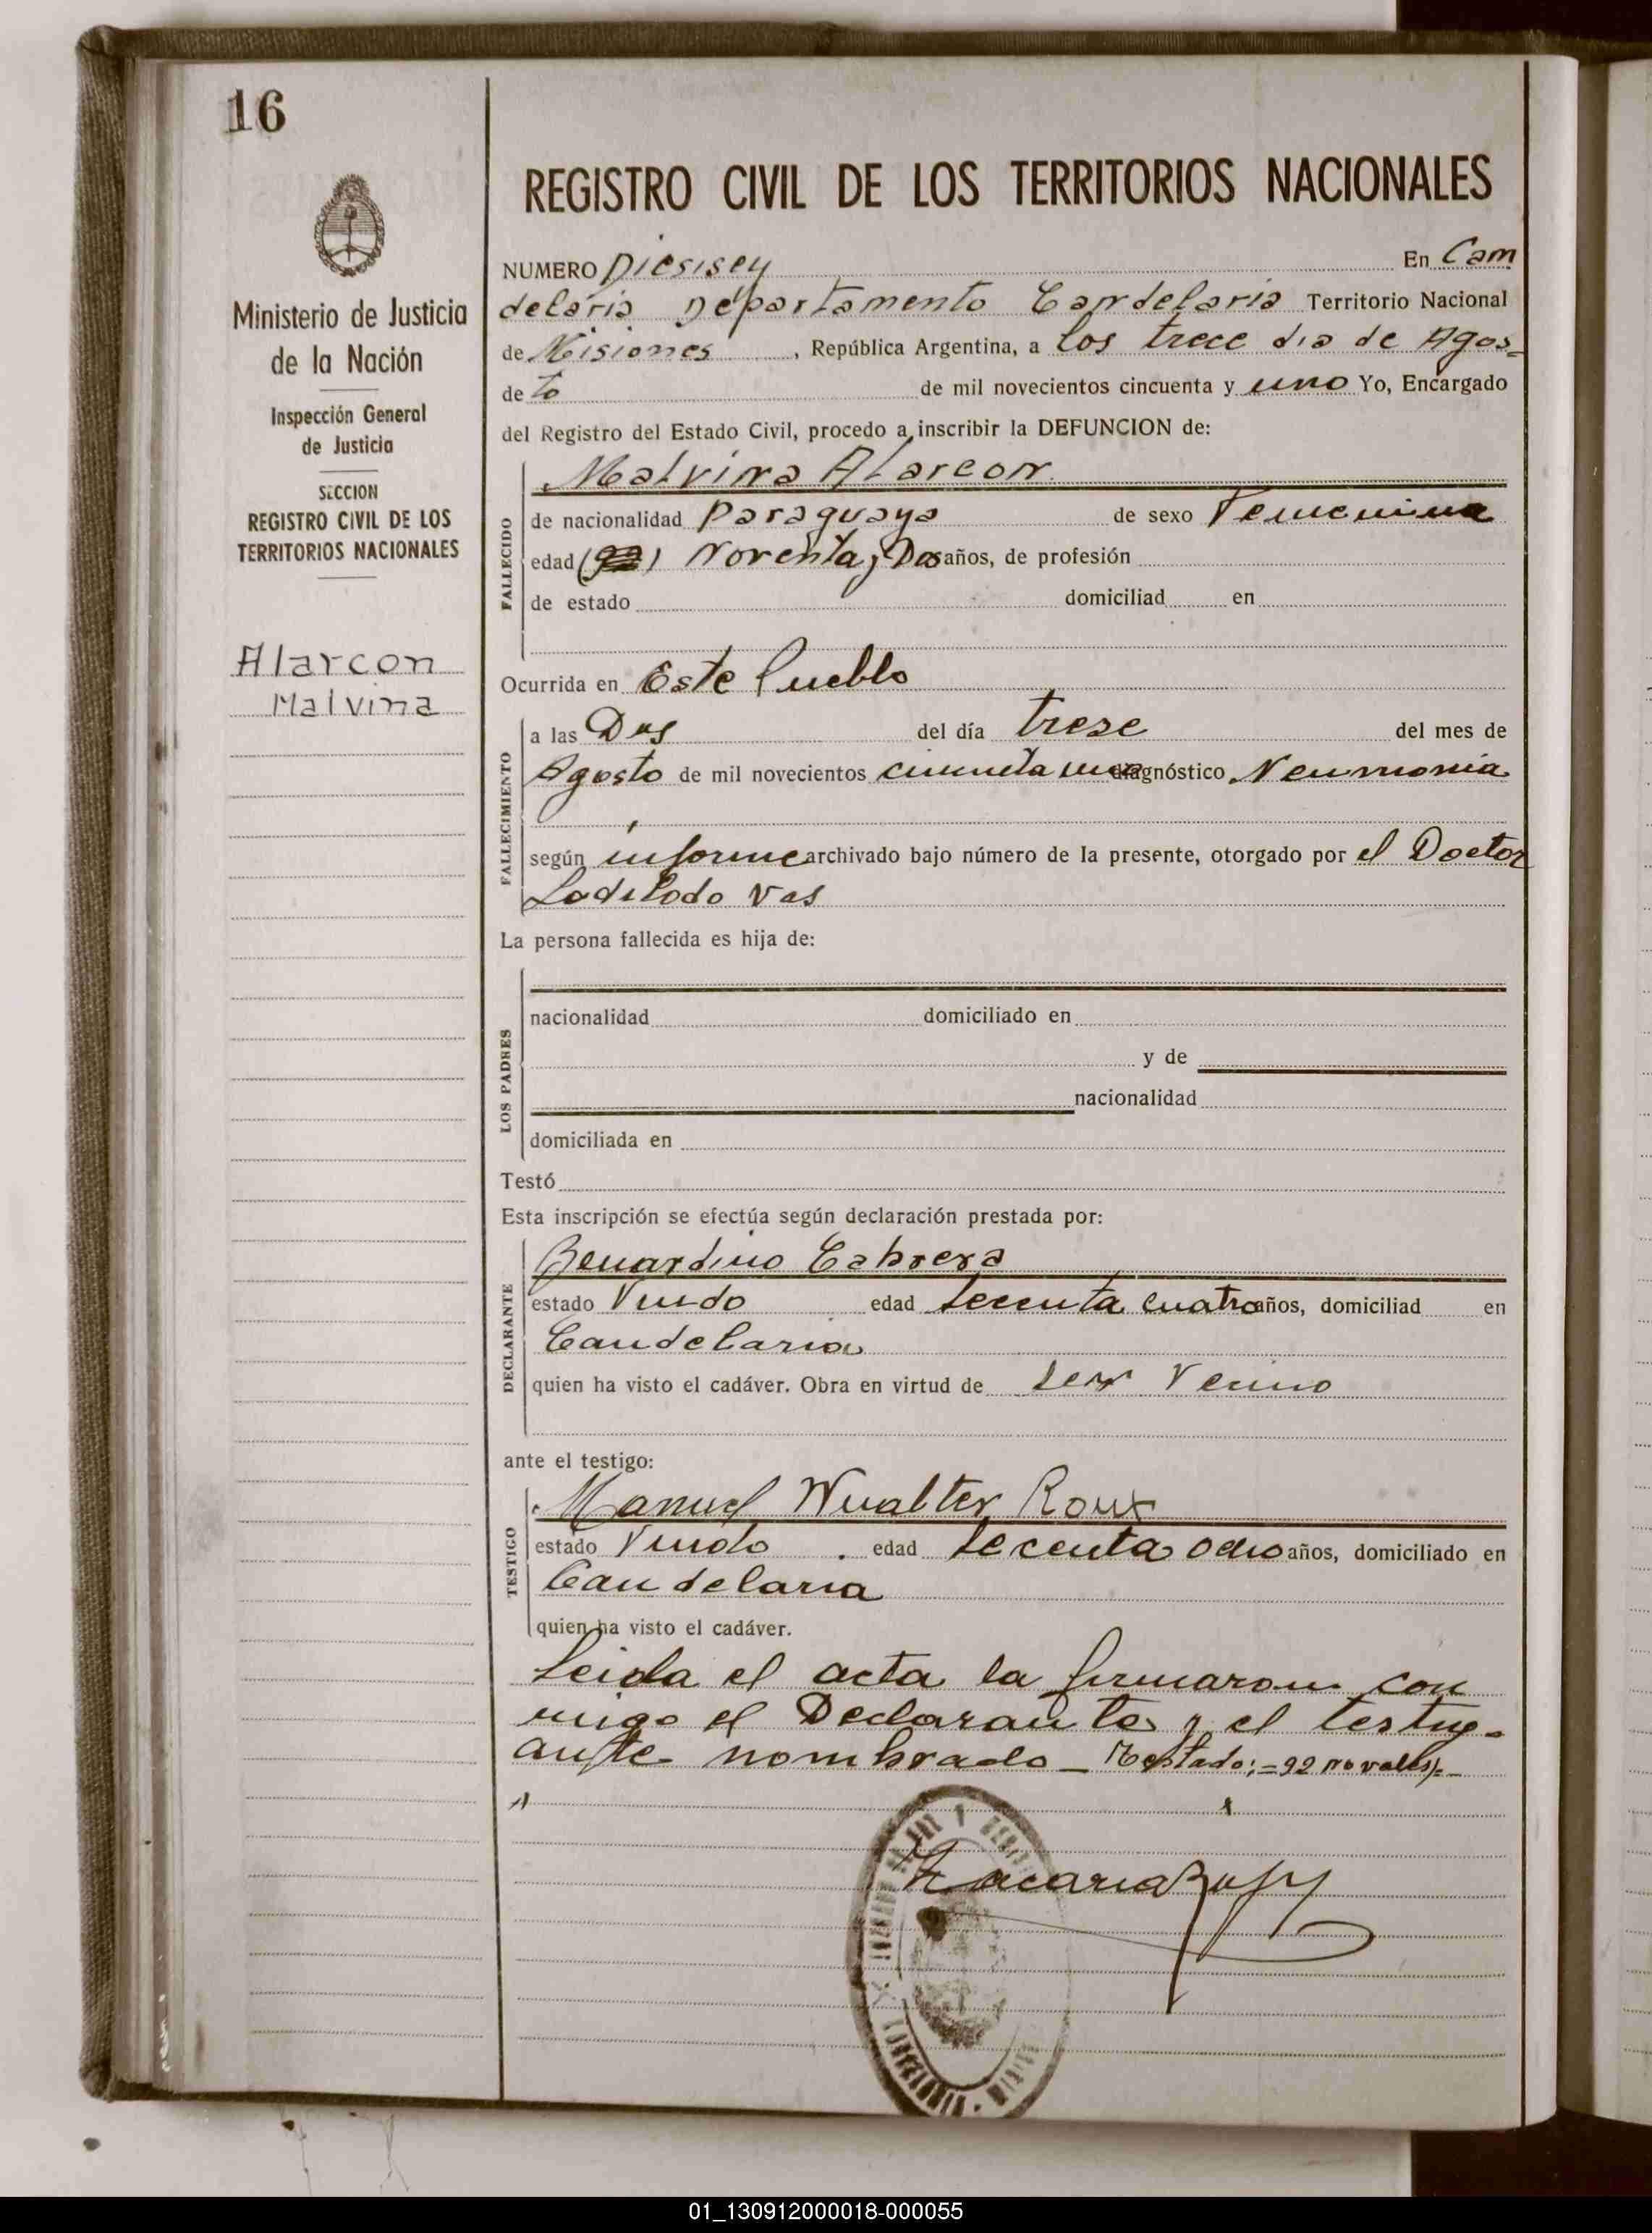 16
Ministerio de Justicia
de la Nación
Inspección General
de Justicia
SECCION
REGISTRO CIVIL DE LOS
TERRITORIOS NACIONALES
Alarcon
Malvina
REGISTRO CIVIL DE LOS TERRITORIOS NACIONALES
NUMERO Diesisey En Can
delaria Departamento Candelaria Territorio Nacional
de Misiones, República Argentina, a los trece dia de Agos=
de to de mil novecientos cincuenta y uno Yo, Encargado
del Registro del Estado Civil, procedo a inscribir la DEFUNCION de:
Malvina Alarcon
FALLECIDO
de nacionalidad Paraguaya de sexo Femenina
edad (92) Noventa y Dos años, de profesión
de estado domiciliad en
Ocurrida en Este Pueblo
FALLECIMIENTO
a las Dos del día trese del mes de
Agosto de mil novecientos cincuenta uno diagnóstico Neumonia
según informe archivado bajo número de la presente, otorgado por el Doctor
Vas
La persona fallecida es hija de:
LOS PADRES
nacionalidad domiciliado en
y de
nacionalidad
domiciliada en
Testó
Esta inscripción se efectúa según declaración prestada por:
DECLARANTE
Benardino Cabrera
estado Viudo edad Secenta cuatro años, domiciliad en
Candelaria
quien ha visto el cadáver. Obra en virtud de ser Vecino
ante el testigo:
TESTIGO
Manuel Wualter Roux
estado Viudo . edad Secenta ocho años, domiciliado en
Candelaria
quien ha visto el cadáver.
Leida el acta la firmaron con
migo el Declarante y el testigo
ante nombrado _ Testado: =92 no vale)=
01_130912000018-000055